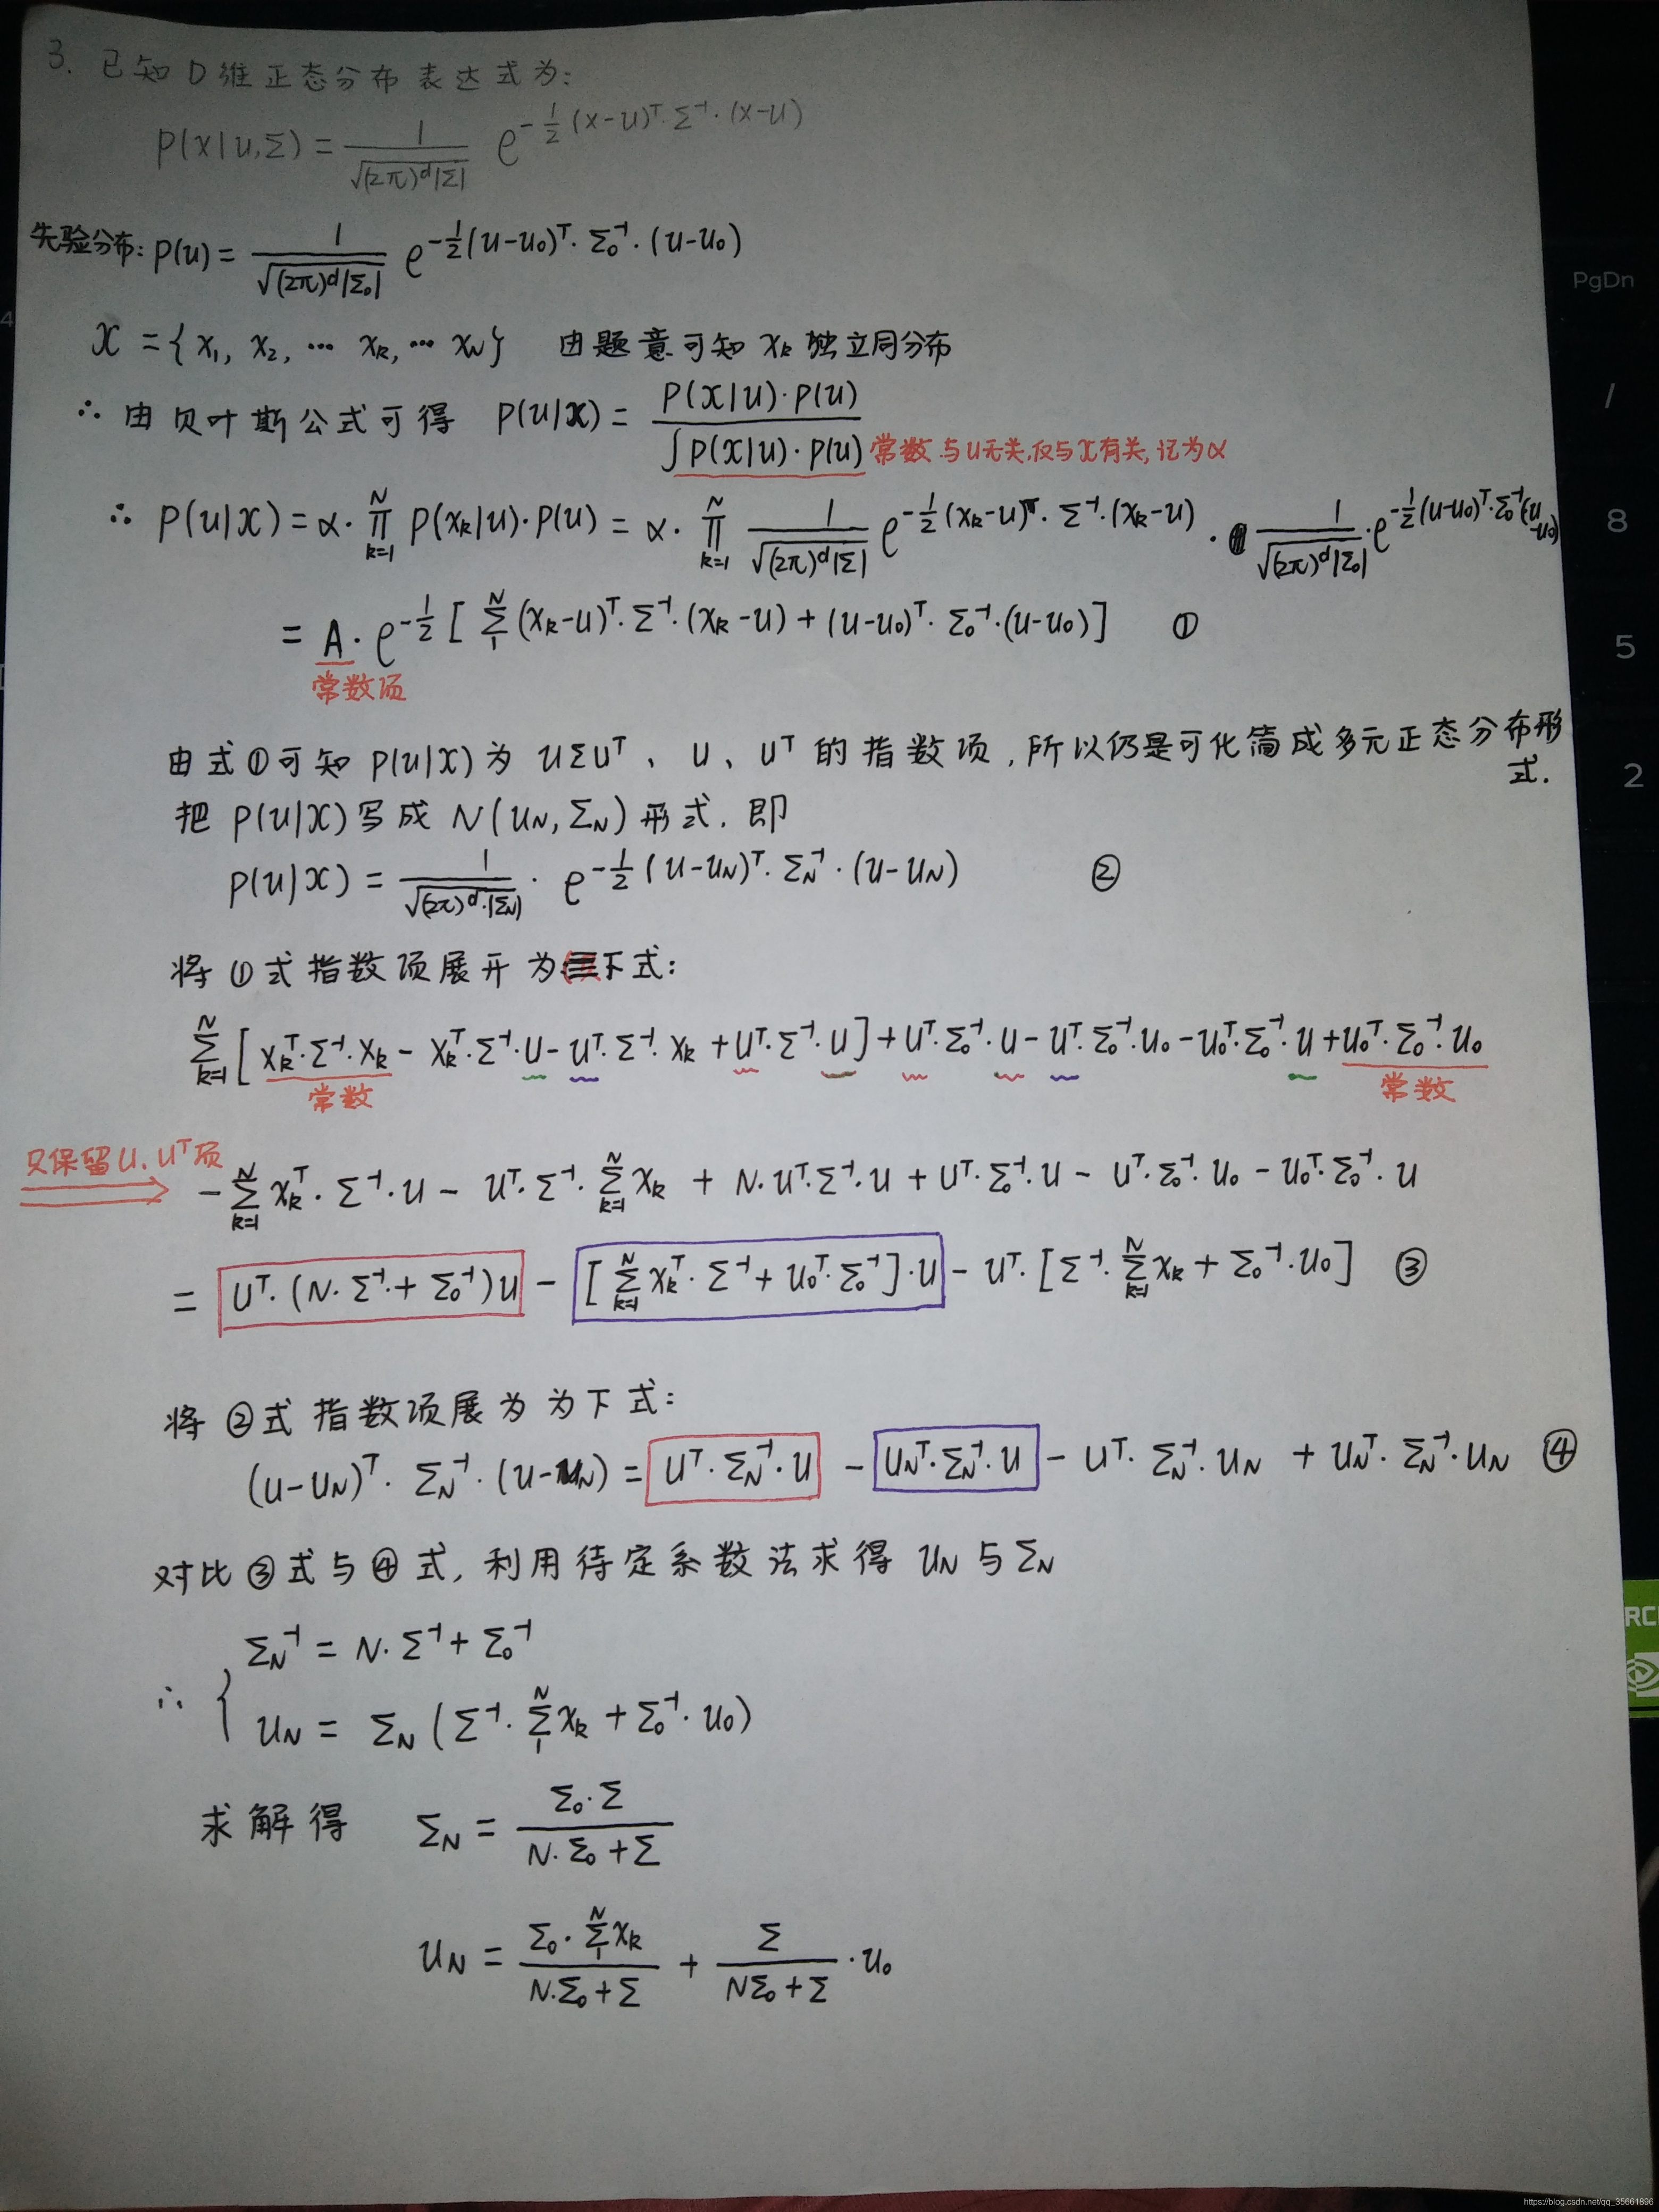 3. 已知 D 维正态分布表达式为:
P(x|u,Σ) = 1/√((2π)^d|Σ|) e^{-1/2 (x-u)^T·Σ^{-1}·(x-u)}
先验分布: P(u) = 1/√((2π)^d|Σ₀|) e^{-1/2(u-u₀)^T·Σ₀^{-1}·(u-u₀)}
X = {x₁, x₂, … x_k, … x_N} 由题意可知 x_k 独立同分布
∴ 由贝叶斯公式可得 P(u|X) = P(X|u)·P(u) / ∫P(X|u)·P(u) 常数 与u无关,仅与X有关, 记为α
∴ P(u|X) = α·∏_{k=1}^{N} P(x_k|u)·P(u) = α·∏_{k=1}^{N} 1/√((2π)^d|Σ|) e^{-1/2(x_k-u)^T·Σ^{-1}·(x_k-u)} · 1/√((2π)^d|Σ₀|)·e^{-1/2(u-u₀)^T·Σ₀^{-1}(u-u₀)}
= A·e^{-1/2}[Σ_1^N (x_k-u)^T·Σ^{-1}·(x_k-u) + (u-u₀)^T·Σ₀^{-1}·(u-u₀)] ①
常数项
由式①可知 P(u|X) 为 uΣu^T、u、u^T 的指数项,所以仍是可化简成多元正态分布形式.
把 P(u|X) 写成 N(u_N, Σ_N) 形式. 即
P(u|X) = 1/√((2π)^d·|Σ_N|) · e^{-1/2(u-u_N)^T·Σ_N^{-1}·(u-u_N)} ②
将①式指数项展开为下式:
Σ_{k=1}^N [x_k^T·Σ^{-1}·x_k - x_k^T·Σ^{-1}·u - u^T·Σ^{-1}·x_k + u^T·Σ^{-1}·u] + u^T·Σ₀^{-1}·u - u^T·Σ₀^{-1}·u₀ - u₀^T·Σ₀^{-1}·u + u₀^T·Σ₀^{-1}·u₀
常数 常数
只保留u、u^T项
-Σ_{k=1}^N x_k^T·Σ^{-1}·u - u^T·Σ^{-1}·Σ_{k=1}^N x_k + N·u^T·Σ^{-1}·u + u^T·Σ₀^{-1}·u - u^T·Σ₀^{-1}·u₀ - u₀^T·Σ₀^{-1}·u
= u^T·(N·Σ^{-1}+Σ₀^{-1})u - [Σ_{k=1}^N x_k^T·Σ^{-1}+u₀^T·Σ₀^{-1}]·u - u^T·[Σ^{-1}·Σ_{k=1}^N x_k + Σ₀^{-1}·u₀] ③
将②式指数项展为为下式:
(u-u_N)^T·Σ_N^{-1}·(u-u_N) = u^T·Σ_N^{-1}·u - u_N^T·Σ_N^{-1}·u - u^T·Σ_N^{-1}·u_N + u_N^T·Σ_N^{-1}·u_N ④
对比③式与④式, 利用待定系数法求得 u_N 与 Σ_N
Σ_N^{-1} = N·Σ^{-1}+Σ₀^{-1}
∴ { u_N = Σ_N(Σ^{-1}·Σ_1^N x_k + Σ₀^{-1}·u₀)
求解得 Σ_N = Σ₀·Σ / (N·Σ₀+Σ)
u_N = Σ₀·Σ_1^N x_k / (N·Σ₀+Σ) + Σ / (NΣ₀+Σ) ·u₀
PgDn
4
/
8
5
2
RC
https://blog.csdn.net/qq_35661896